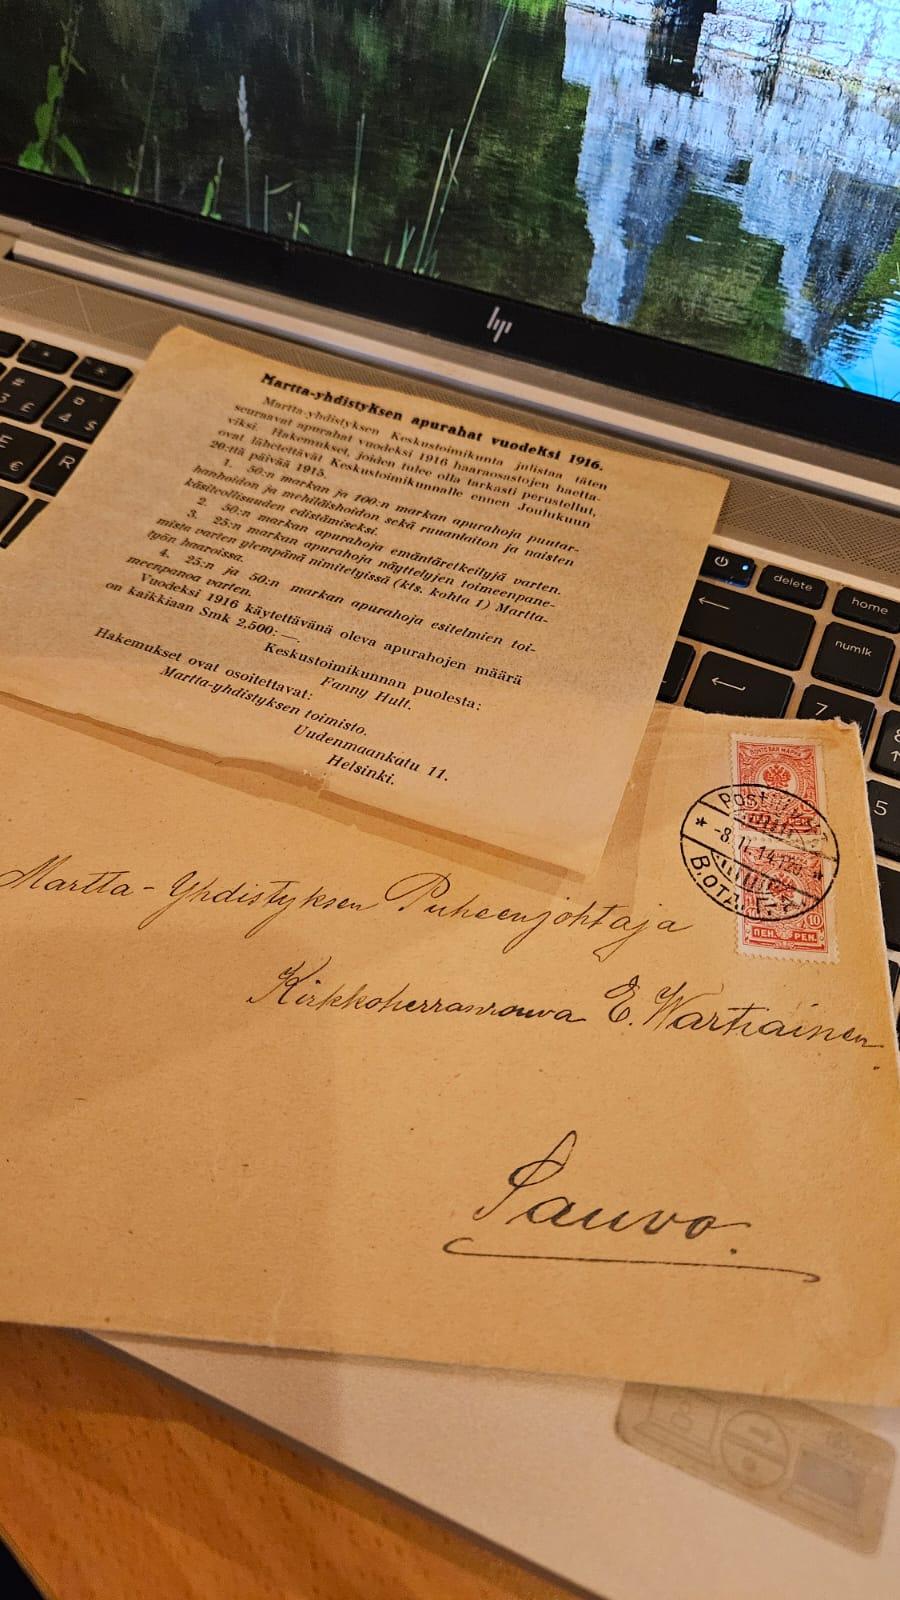 hp
Martta-yhdistyksen apurahat vuodeksi 1916.
Martta-yhdistyksen Keskustoimikunta julistaa täten
seuraavat apurahat vuodeksi 1916 haaraosastojen haetta-
viksi. Hakemukset, joiden tulee olla tarkasti perustellut,
ovat lähetettävät Keskustoimikunnalle ennen Joulukuun
20:ttä päivää 1915.
1. 50:n markan ja 100:n markan apurahoja puutar-
hanhoidon ja mehiläishoidon sekä ruuanlaiton ja naisten
käsiteollisuuden edistämiseksi.
2. 50:n markan apurahoja emäntäretkeilyjä varten.
3. 25:n markan apurahoja näyttelyjen toimeenpane-
mista varten ylempänä nimitetyissä (kts. kohta 1) Martta-
työn haaroissa.
4. 25:n ja 50:n markan apurahoja esitelmien toi-
meenpanoa varten.
Vuodeksi 1916 käytettävänä oleva apurahojen määrä
on kaikkiaan Smk 2,500:—.
Keskustoimikunnan puolesta:
Fanny Hult.
Hakemukset ovat osoitettavat:
Martta-yhdistyksen toimisto.
Uudenmaankatu 11.
Helsinki.
# 3 £
¤ 4 $
E €
R
delete
home
numlk
7
8
5
ПОЧТОВАЯ МАРКА
-8.11.14
10
ПЕН. PEN.
Martta-Yhdistyksen Puheenjohtaja
Kirkkoherranrouva E. Wartiainen.
Sauvo.